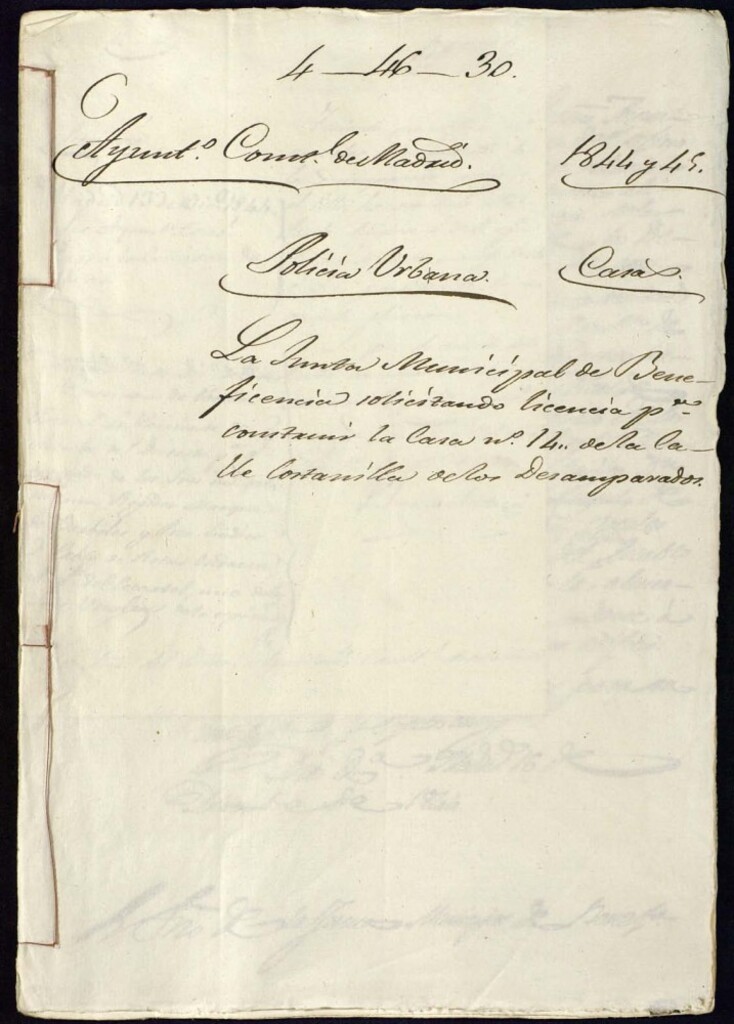 4 - 46 - 30.
Ayunt.º Const.l de Madrid. 1844 y 45.
Policia Urbana. Casas.
La Junta Municipal de Bene-
ficencia solicitando licencia p.ra
construir la Casa nº. 14.. de la Ca-
lle Costanilla de los Desamparados.